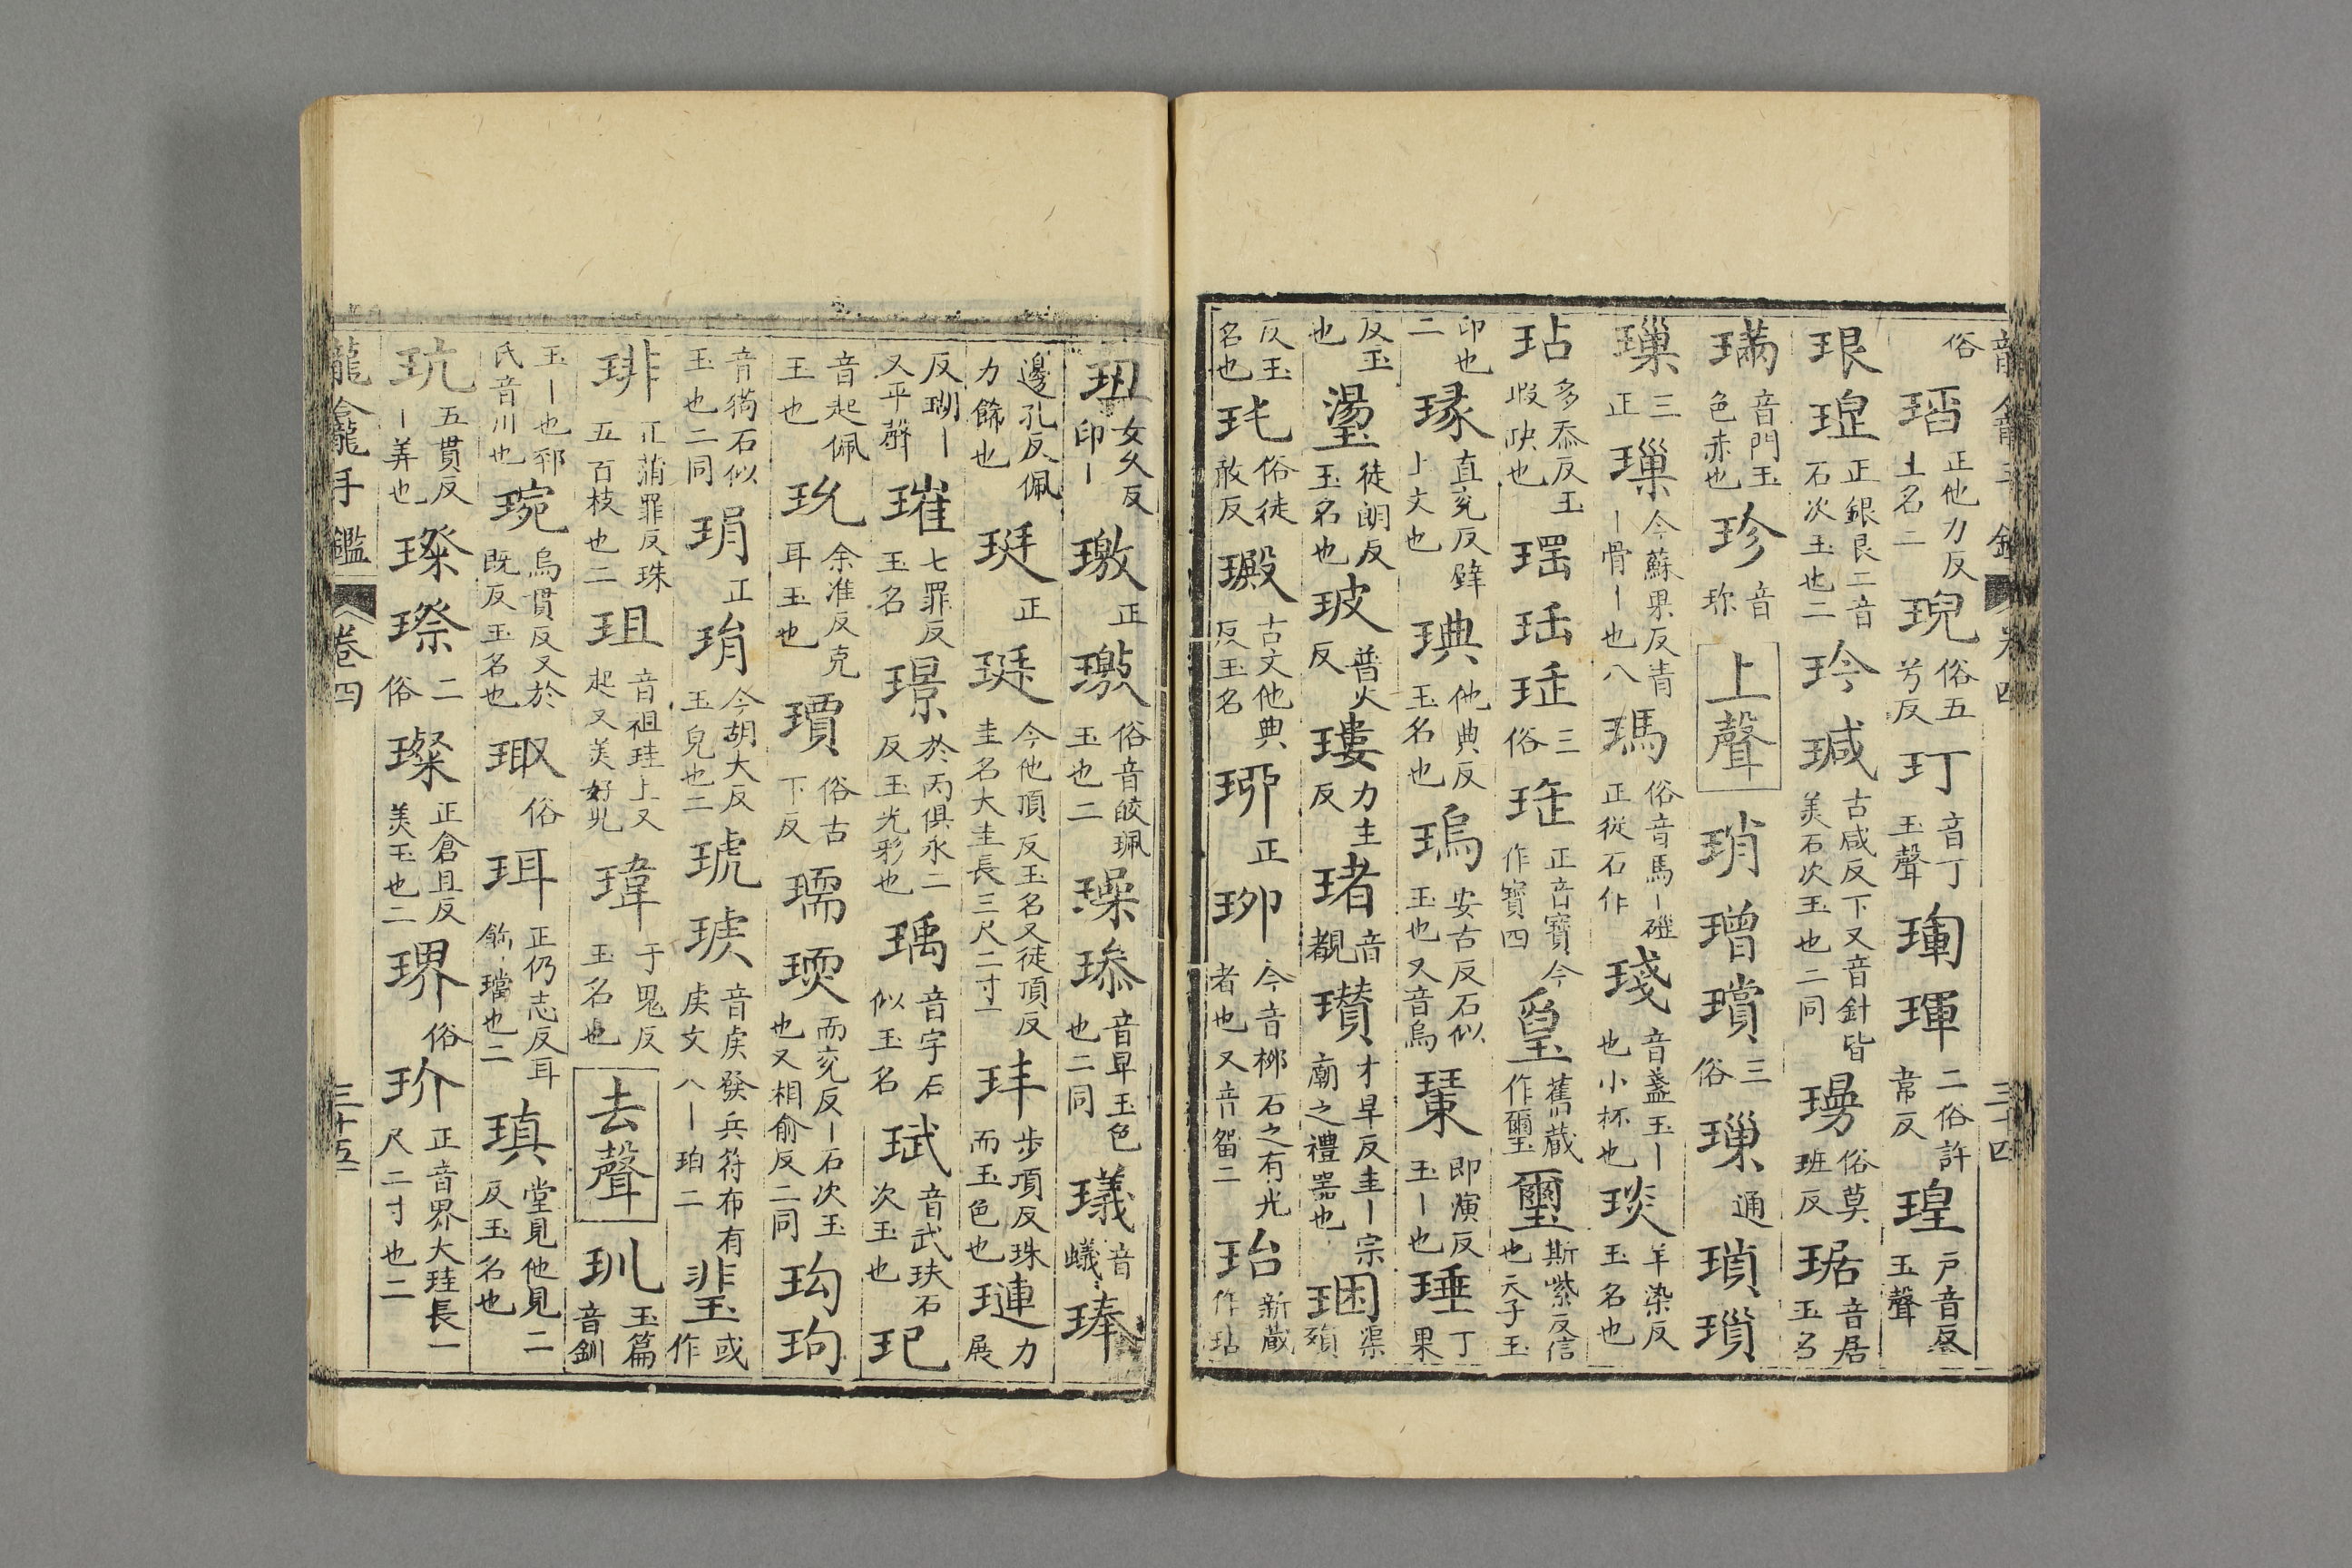 俗瑫正他刀反土名二䝨俗五兮反玎音丁玉聲㻞琿二俗許韋反瑝戶音反玉聲
珢瑆正銀艮二音石次玉也二玪瑊古咸反下又音針皆美石次玉也二同㻴俗莫班反琚音居玉名
璊音門玉色赤也珍音珎上聲琑璔瓆三俗璅通瑣瑣
璅三正璅今蘇果反青丨骨丨也八瑪俗音馬丨磑正從石作琖音盞玉丨也小杯也琰羊染反玉名也
玷多忝反玉瑕玦也瑶珤㺵三俗琟正音寶今作寶四𤣩舊藏作璽璽斯紫反信也天子玉
印也二瑑直兖反璧上文也琠他典反玉名也瑦安古反石似玉也又音烏琹即演反玉丨也琸丁果
反玉也璗徒朗反玉名也玻普火反瓄力主反琽音覩瓉才旱反圭丨宗廟之禮器也㻒渠殞
反玉名也玧俗徒敢反㻪古文他典反玉名珋正珋今音桺石之有光者也又音畱二珆新藏作玷
龍龕手鑑 卷四 三十四
玬女久反印丨璬正璬俗音皎珮玉也二璪㻸音早玉色也二同㼁音蟻琫
邊孔反佩力餙也珽正珽今他頂反玉名又徒頂反圭名大圭長三尺二寸一玤步項反珠而玉色也璉力展
反瑚丨又平聲璀七罪反玉名璟於丙俱永二反玉光彩也瑀音宇石似玉名珷音武玞石次玉也玘
音起佩玉也玧余准反充耳玉也㻔俗古下反瓀瑌而兖反丨石次玉也又相俞反二同玽玽
音狗石似玉也二同琄正琄今胡犬反玉皃也二琥琥音虎發兵符布有虎文八丨珀二琲或作
琲正蒲罪反珠五百枝也二珇音祖珪上又起又美好皃瑋于鬼反玉名也去聲玔玉篇音釧
玉丨也邳氏音川也琬烏貫反又於既反玉名也㻓俗珥正仍志反耳飾璫也二瑱堂見他見二反玉名也
玩五貫反丨弄也璨㻮二俗璨正倉且反美玉也二琾俗玠正音界大珪長一尺二寸也二
龍龕手鑑 卷四 三十五